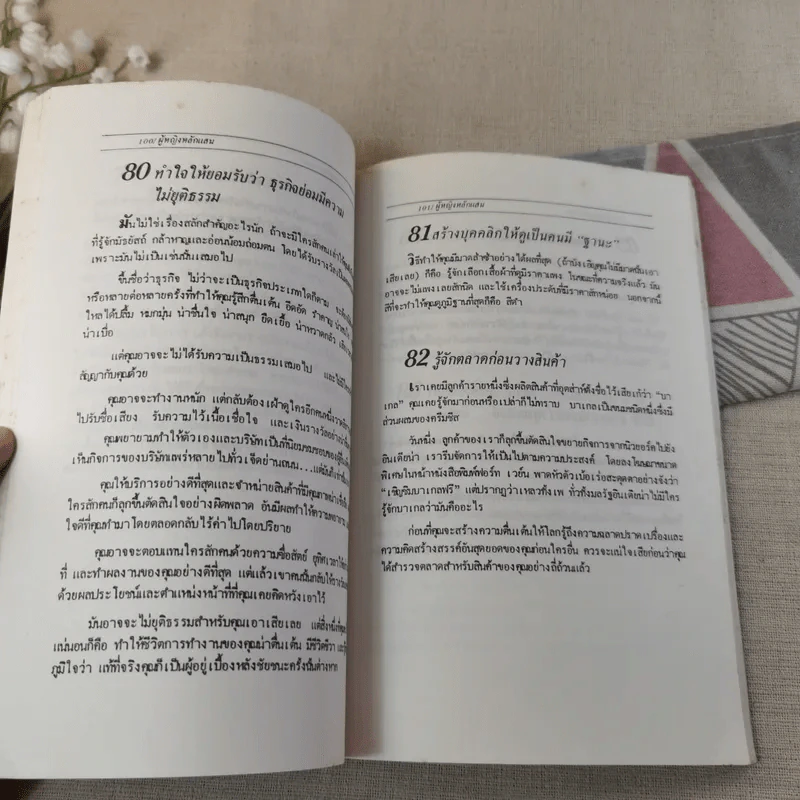 100/ ผู้หญิงหลักแสน
80 ทำใจให้ยอมรับว่า ธุรกิจย่อมมีความ
ไม่ยุติธรรม
มันไม่ใช่เรื่องสลักสำคัญอะไรนัก ถ้าจะมีใครสักคน
ที่รู้จักมัธยัสถ์ กล้าหาญและอ่อนน้อมถ่อมตน โดยได้รับรางวัล
เพราะมันไม่เป็นเช่นนั้นเสมอไป
ขึ้นชื่อว่าธุรกิจ ไม่ว่าจะเป็นธุรกิจประเภทใดก็ตาม
หรือหลายต่อหลายครั้งที่ทำให้คุณรู้สึกตื่นเต้น อึดอัด รำคาญ
ไหลได้ปลื้ม หมกมุ่น น่าชื่นใจ น่าสนุก ยืดเยื้อ น่าหวาดกลัว
น่าเบื่อ
แต่คุณอาจจะไม่ได้รับความเป็นธรรมเสมอไป
สัญญากับคุณด้วย
คุณอาจจะทำงานหนัก แต่กลับต้องเฝ้าดูใครอีกคนหนึ่ง
ไปรับชื่อเสียง รับความไว้เนื้อเชื่อใจ และเงินรางวัลอย่าง
คุณพยายามทำให้ตัวเองและบริษัทเป็นที่นิยมชมชอบของ
เห็นกิจการของบริษัทแพร่หลายไปทั่วเจ็ดย่านถนน...แต่มัน
คุณให้บริการอย่างดีที่สุดและจำหน่ายสินค้าที่มีคุณภาพ
ใครสักคนก็ลุกขึ้นตัดสินใจอย่างผิดพลาด อันมีผลทำให้ความพยายาม
ใจดีที่คุณทำมาโดยตลอดกลับไร้ค่าไปโดยปริยาย
คุณอาจจะตอบแทนใครสักคนด้วยความซื่อสัตย์ อุทิศเวลาให้
ที่ และทำผลงานของคุณอย่างดีที่สุด แต่แล้วเขาคนนั้นกลับให้รางวัล
ด้วยผลประโยชน์และตำแหน่งหน้าที่ที่คุณเคยคิดหวังเอาไว้
มันอาจจะไม่ยุติธรรมสำหรับคุณเอาเสียเลย แต่สิ่งหนึ่งที่
แน่นอนก็คือ ทำให้ชีวิตการทำงานของคุณน่าตื่นเต้น มีชีวิตชีวา และ
ภูมิใจว่า แท้ที่จริงคุณก็เป็นผู้อยู่เบื้องหลังชัยชนะครั้งนั้นต่างหาก
101/ ผู้หญิงหลักแสน
81 สร้างบุคคลิกให้ดูเป็นคนมี "ฐานะ"
วิธีทำให้คุณมีมาดสำซ้าอย่างได้ผลที่สุด (ถ้าบังเอิญคุณไม่มีมาดนั้นเอา
เสียเลย) ก็คือ รู้จักเลือกเสื้อผ้าที่ดูมีราคาแพง ในขณะที่ความจริงแล้ว มัน
อาจจะไม่แพงเลยสักนิด และใช้เครื่องประดับที่มีราคาสักหน่อย นอกจากนี้
สีที่จะทำให้คุณดูภูมิฐานที่สุดก็คือ สีดำ
82 รู้จักตลาดก่อนวางสินค้า
เราเคยมีลูกค้ารายหนึ่งซึ่งผลิตสินค้าที่อุตส่าห์ตั้งชื่อไว้เสียเก๋ว่า "บา
เกล" คุณเคยรู้จักมาก่อนหรือเปล่าก็ไม่ทราบ บาเกลเป็นขนมชนิดหนึ่งซึ่งมี
ส่วนผสมของครีมชีส
วันหนึ่ง ลูกค้าของเราก็ลุกขึ้นตัดสินใจขยายกิจการจากนิวยอร์คไปยัง
อินเดียน่า เรารีบจัดการให้เป็นไปตามความประสงค์ โดยลงโฆษณาขนาด
พิเศษในหน้าหนังสือพิมพ์ฟอร์ท เวย์น พาดหัวตัวเบ้อเร่อสะดุดตาอย่างจังว่า
"เชิญชิมบาเกลฟรี" แต่ปรากฏว่าเหลวทั้งเพ ทั่วทั้งมลรัฐอินเดียน่าไม่มีใคร
รู้จักบาเกลว่ามันคืออะไร
ก่อนที่คุณจะสร้างความตื่นเต้นให้โลกรู้ถึงความฉลาดปราดเปรื่องและ
ความคิดสร้างสรรค์อันสุดยอดของคุณก่อนใครอื่น ควรจะแน่ใจเสียก่อนว่าคุณ
ได้สำรวจตลาดสำหรับสินค้าของคุณอย่างถี่ถ้วนแล้ว